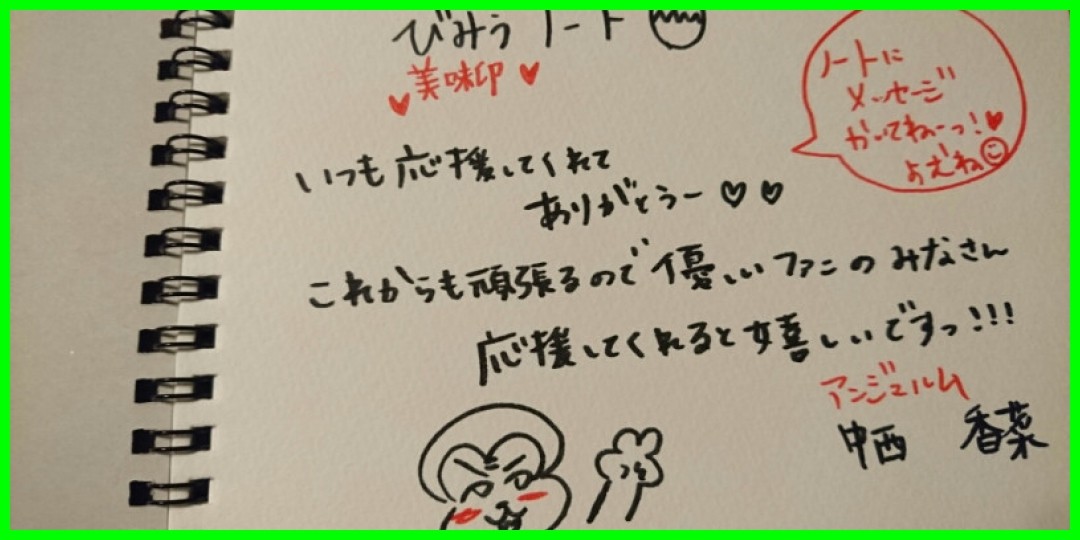 びみぅノート
美味印
ノートに
メッセージ
かいてねーっ!
よだれ
いつも応援してくれて
ありがとうー
これからも頑張るので優しいファンのみなさん
応援してくれると嬉しいですっ!!!
アンジュルム
中西 香菜